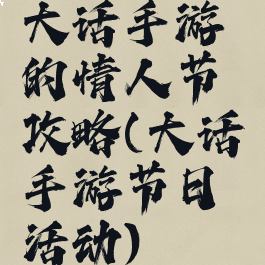 大话手游
的情人节
攻略(大话
手游节日
活动)